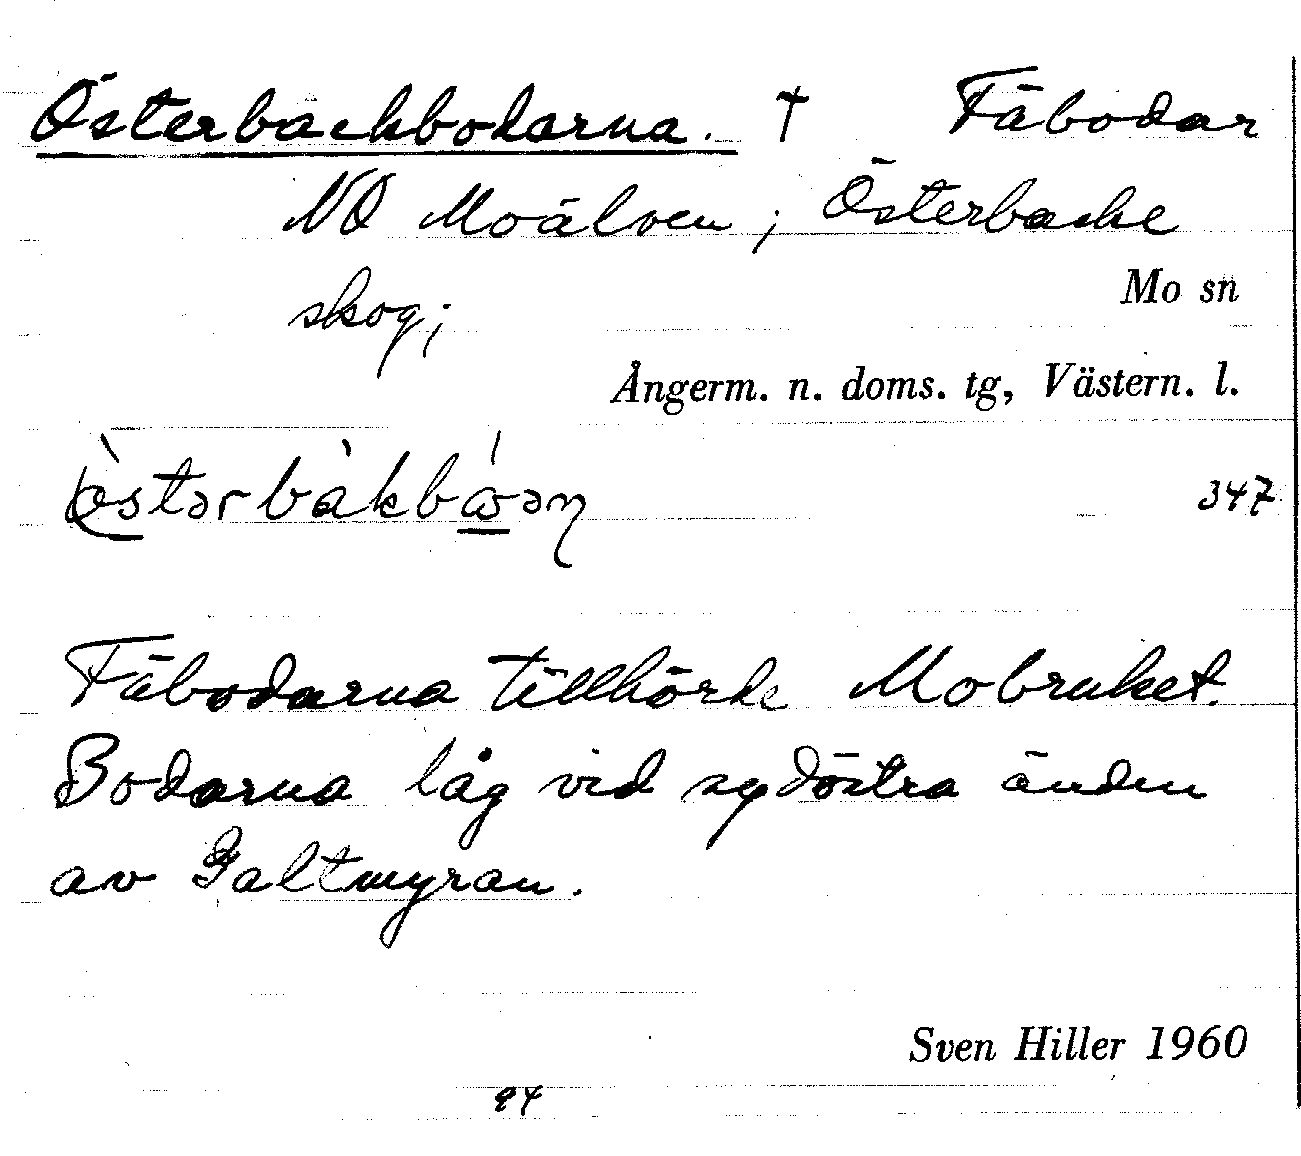 Österbackbodarna. † Fäbodar
NO Moälven; Österbacke
skog; Mo sn
Ångerm. n. doms. tg, Västern. l.
347
Fäbodarna tillhörde Mobruket.
Bodarna låg vid sydöstra änden
av Galtmyran.
Sven Hiller 1960
94